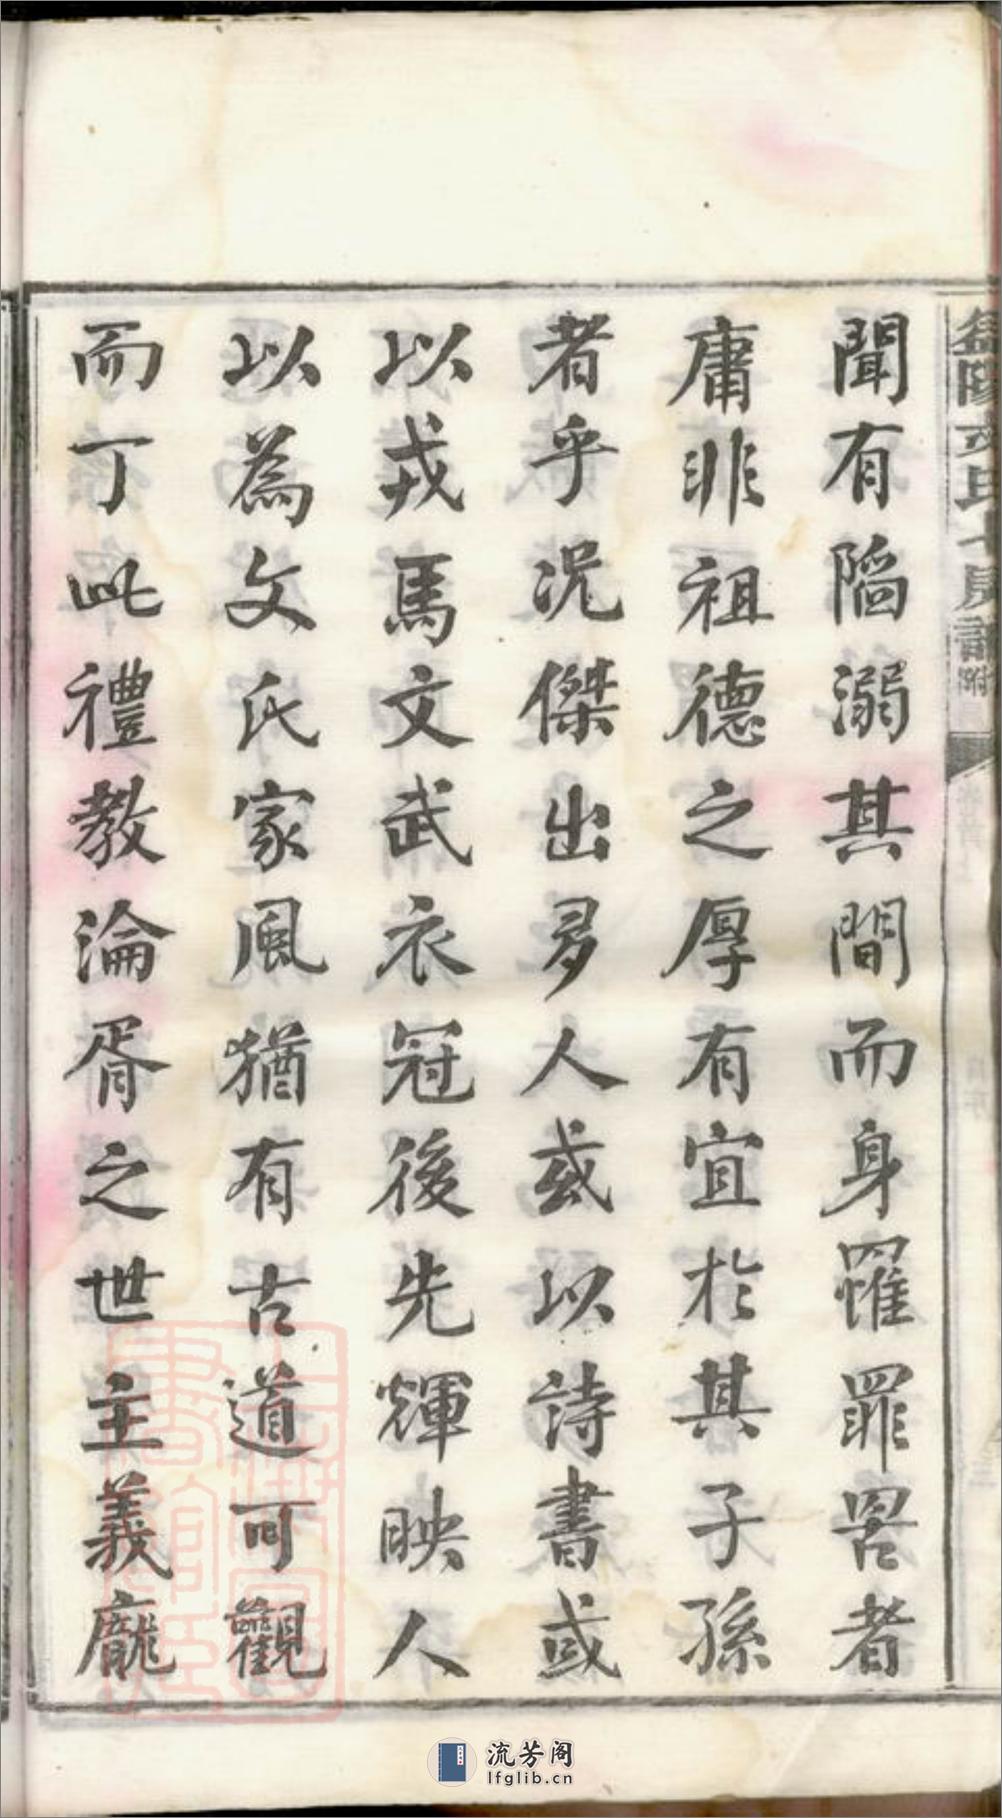 聞有陷溺其間而身罹罪罟者
庸非祖德之厚有宜於其子孫
者乎况傑出多人或以詩書或
以戎馬文武衣冠後先輝映人
以為文氏家風猶有古道可觀
而丁此禮教淪胥之世主義龐
益陽文氏十房譜附
自序
流芳阁
lfglib.cn